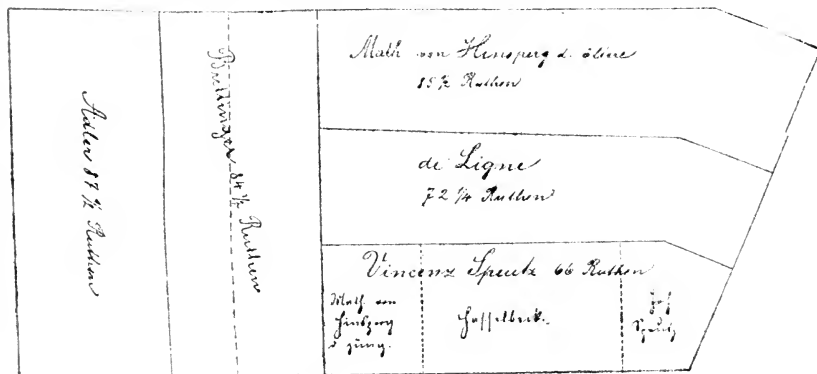 Adler 87 1/2 Ruthen
Breitinger 84 1/2 Ruthen
Math von Hinsperg d. ältere
85 1/2 Ruthen
de Ligne
72 1/4 Ruthen
Vincenz Speutz 66 Ruthen
Math. von
Hinsperg
d jung.
Hasselbeck.
Jos